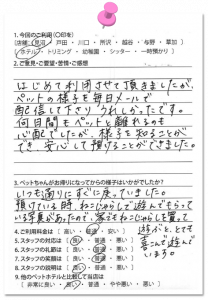 1.今回のご利用(〇印を)
店舗(見沼・戸田・川口・所沢・越谷・与野・草加)
(ホテル・トリミング・幼稚園・シッター・一時預かり)
2.ご意見・ご要望・苦情・ご感想
はじめて利用させて頂きましたが、
ペットの様子も毎日メールで
配信して下さり、うれしかったです。
何日間もペットと離れるのも
心配でしたが、様子も知ることが
でき、安心して預けることができました。
3.ペットちゃんがお帰りになってからの様子はいかがでしたか?
いつも通りにすぐに戻っていました。
預けている時、ねこじゃらしで遊んでもらって
いる写真があったので、家でもねこじゃらしを買って
4.ご利用料金は(高い・普通・安い)
5.スタッフの対応は(良い・普通・悪い)
6.スタッフの礼節は(良い・普通・悪い)
7.スタッフの笑顔は(良い・普通・悪い)
8.スタッフの説明は(良い・普通・悪い)
9.他のペットホテルと比較して当店は
(非常に良い・良い・普通・やや悪い・悪い)
遊ぶと、とても
喜んで遊んで
います。